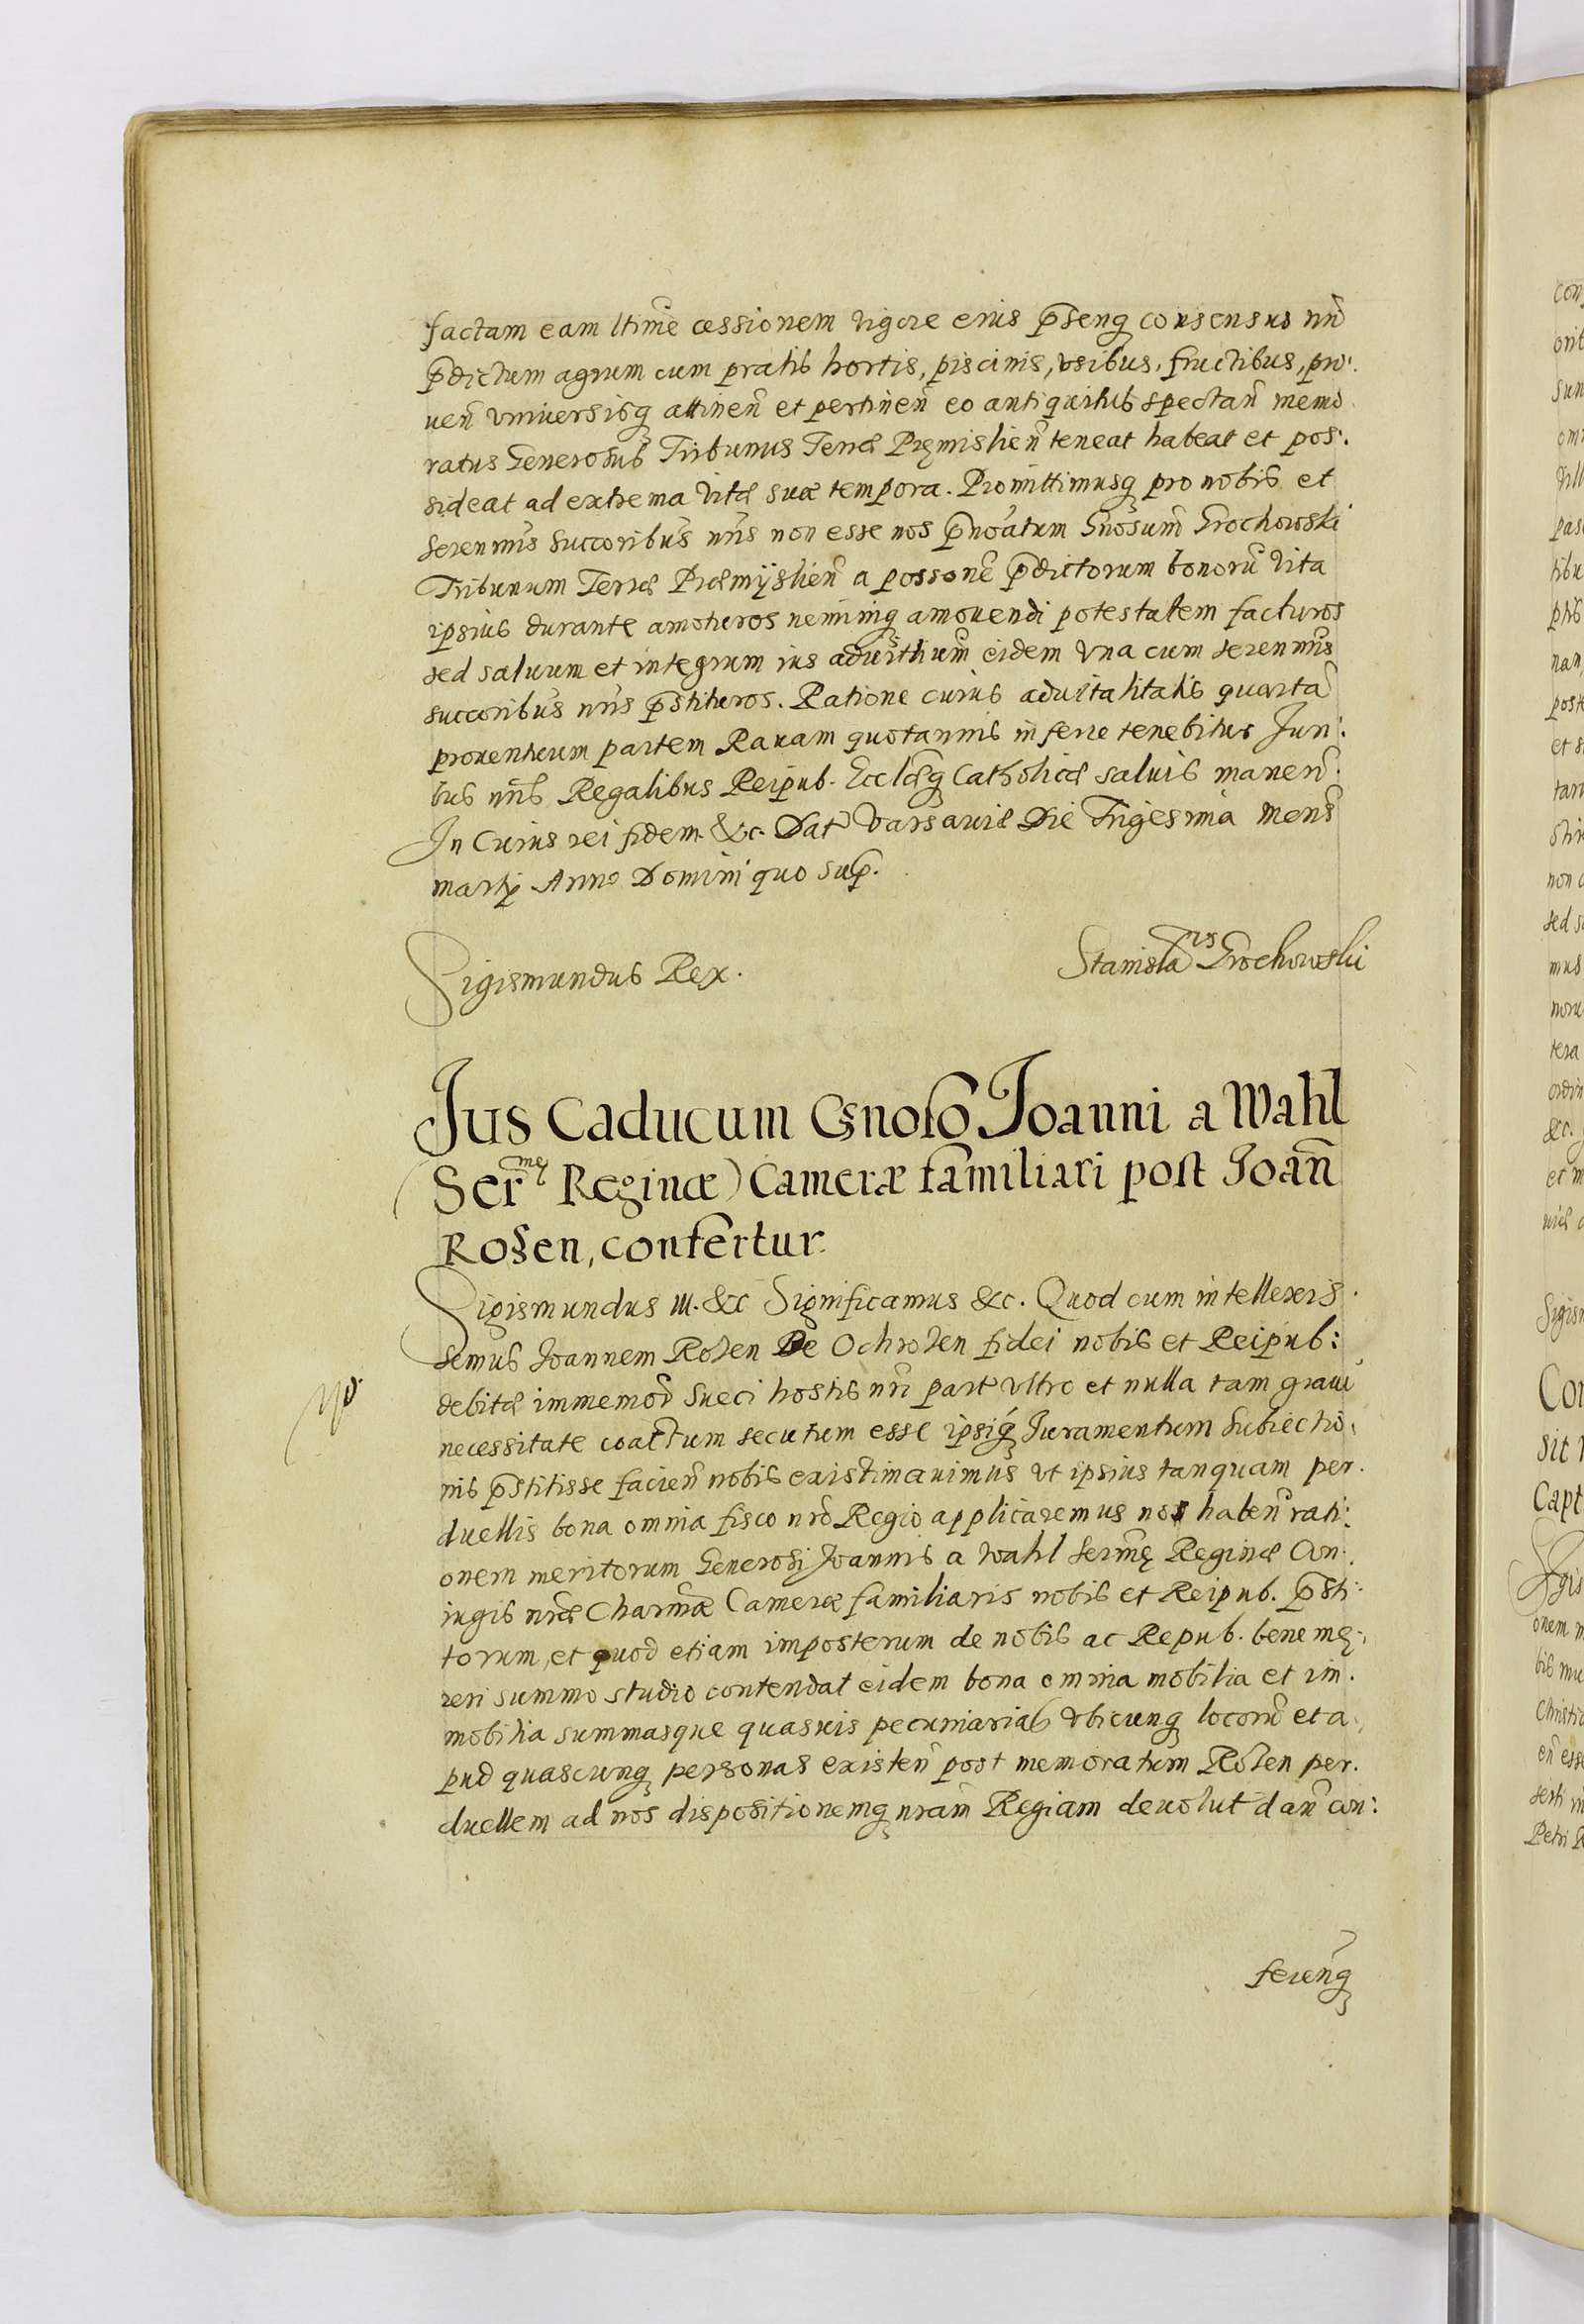 factam eam ltime cessionem vigore eius p̄senq consensus nri
p̄dictum agrum cum pratis hortis, piscinis, vsibus, fructibus, pro:
uen̄ vniversisq attinen̄ et pertinen̄ eo antiquitus spectan̄ memo
ratus Generosus Tribunus Terræ Pręmislien̄ teneat habeat et pos:
sideat ad extrema vitæ suæ tempora. Promittimusq pro nobis et
serenmis succoribus nris non esse nos p̄noatum Gnosum Grochowski
Tribunum Terræ Præmijslien̄ a possone p̄dictorum bonorū vita
ipsius durante amoturos neminiq amouendi potestatem facturos
sed saluum et integrum ius aduithum eidem vna cum serenmis
succoribus nris p̄stituros. Ratione cuius aduitalitatis quarta
prouentuum partem Rauam quotannis inferre tenebitur Juri:
bus nris Regalibus Reipub. Ecclæq Catholicæ saluis manen̄.
In Cuius rei fidem &c. Dat Varsaviæ Die Trigesima Mens
martij Anno Domini quo sup.
Sigismundus Rex.
Stanislaus Grochowski
Jus Caducum Gnoso Joanni a Wahl
(Sermę Reginæ) Cameræ familiari post Joan̄
Rosen, confertur.
Sigismundus III. &c Significamus &c. Quod cum intellexis:
semus Joannem Rosen De Ochrosen fidei nobis et Reipub:
debitæ immemor Sueci hostis nri part vltro et nulla tam graui
necessitate coactum secutum esse ipsiq Juramentum subiectio:
nis p̄stitisse facien̄ nobis existimauimus vt ipsius tanquam per:
duellis bona omnia fisco nro Regio applicaremus nos haben̄ rati:
onem meritorum Generosi Joannis a Wahl sermę Reginæ Con:
iugis nræ Charmæ Cameræ familiaris nobis et Reipub. p̄sti:
torum, et quod etiam imposterum de nobis ac Repub. bene mę:
reri summo studio contendat eidem bona omnia mobilia et im:
mobilia summasque quasuis pecuniarias vbicunq locorū et a:
pud quascunq personas existen̄ post memoratum Rosen per:
duellem ad nos dispositionemq nram Regiam deuolut dan̄ con:
feren̄q